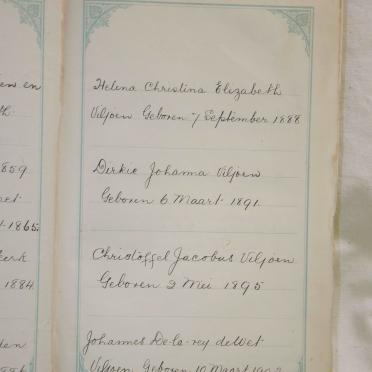 en en
th.
1859
et
1865
erk
1884
den
Helena Christina Elizabeth
Viljoen Geboren 7 September 1888
Dirkie Johanna Viljoen
Geboren 6 Maart 1891
Christoffel Jacobus Viljoen
Geboren 2 Mei 1895
Johannes De-la-rey deWet
Viljoen Geboren 10 Maart